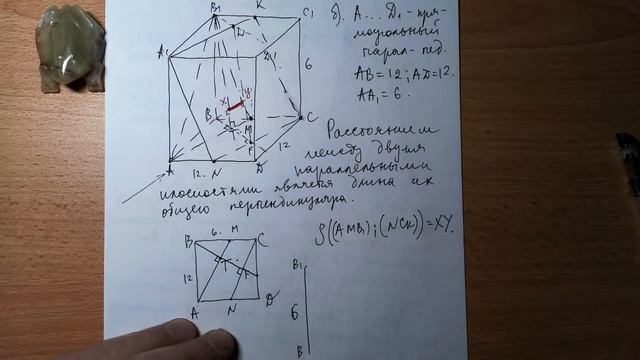 B₁
K
C₁
δ). A...D₁ - пря-
моугольный
парал-пед.
A₁
N
D₁
AB = 12; AD = 12.
6
AA₁ = 6.
x
y
B
C
M
Расстоянием
F
между двумя
12
параллельными
A
12.
N
D
плоскостями является длина их
общего перпендикуляра.
ρ((AMB₁); (NCK)) = XY.
6.
B
M
C
B₁
12
6
A
N
D
B